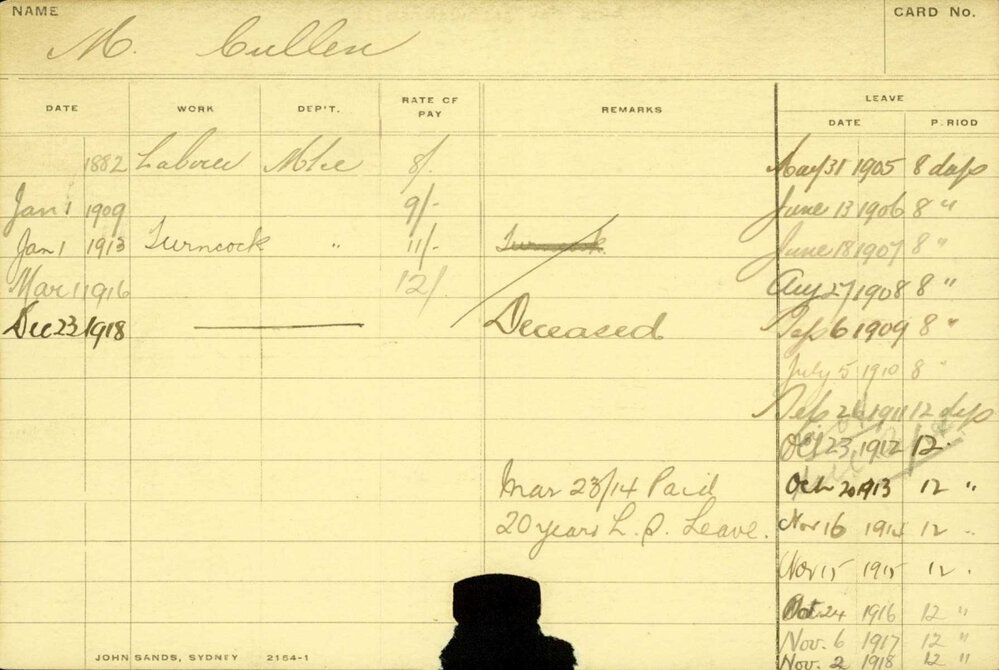 NAME M. Cullen CARD No.
DATE WORK DEP'T. RATE OF PAY REMARKS LEAVE
DATE P.RIOD
1882 Labourer 8/- May 31 1905 8 days
Jan 1 1909 9/- June 13 1906 8 "
Jan 1 1913 Turncock " 11/- Turncock June 18 1907 8 "
Mar 1 1916 12/- Aug 27 1908 8 "
Dec 23 1918 Deceased Sep 6 1909 8 "
July 5 1910 8 "
Sep 26 1911 12 days
Oct 23 1912 12 "
Mar 23/14 Paid Oct 20 1913 12 "
20 years L. S. Leave. Nov 16 1914 12 "
Nov 15 1915 12 "
Oct 24 1916 12 "
Nov. 6 1917 12 "
Nov. 2 1918 12 "
JOHN SANDS, SYDNEY 2154-1